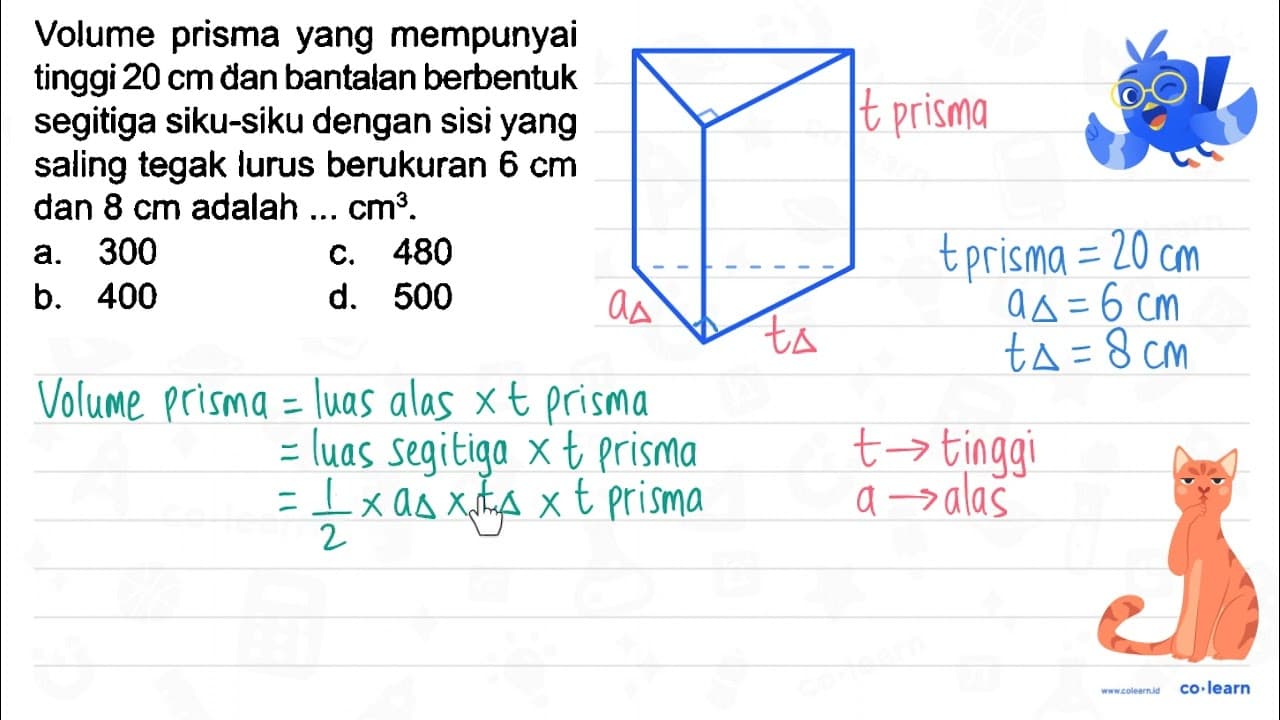 Volume prisma yang mempunyai
tinggi 20 cm dan bantalan berbentuk
segitiga siku-siku dengan sisi yang
saling tegak lurus berukuran 6 cm
dan 8 cm adalah ... cm³.
a. 300 c. 480
b. 400 d. 500
t prisma
a△
t△
t prisma = 20 cm
a△ = 6 cm
t△ = 8 cm
Volume prisma = luas alas x t prisma
= luas segitiga x t prisma
= 1/2 x a△ x t△ x t prisma
t → tinggi
a → alas
www.colearn.id co·learn